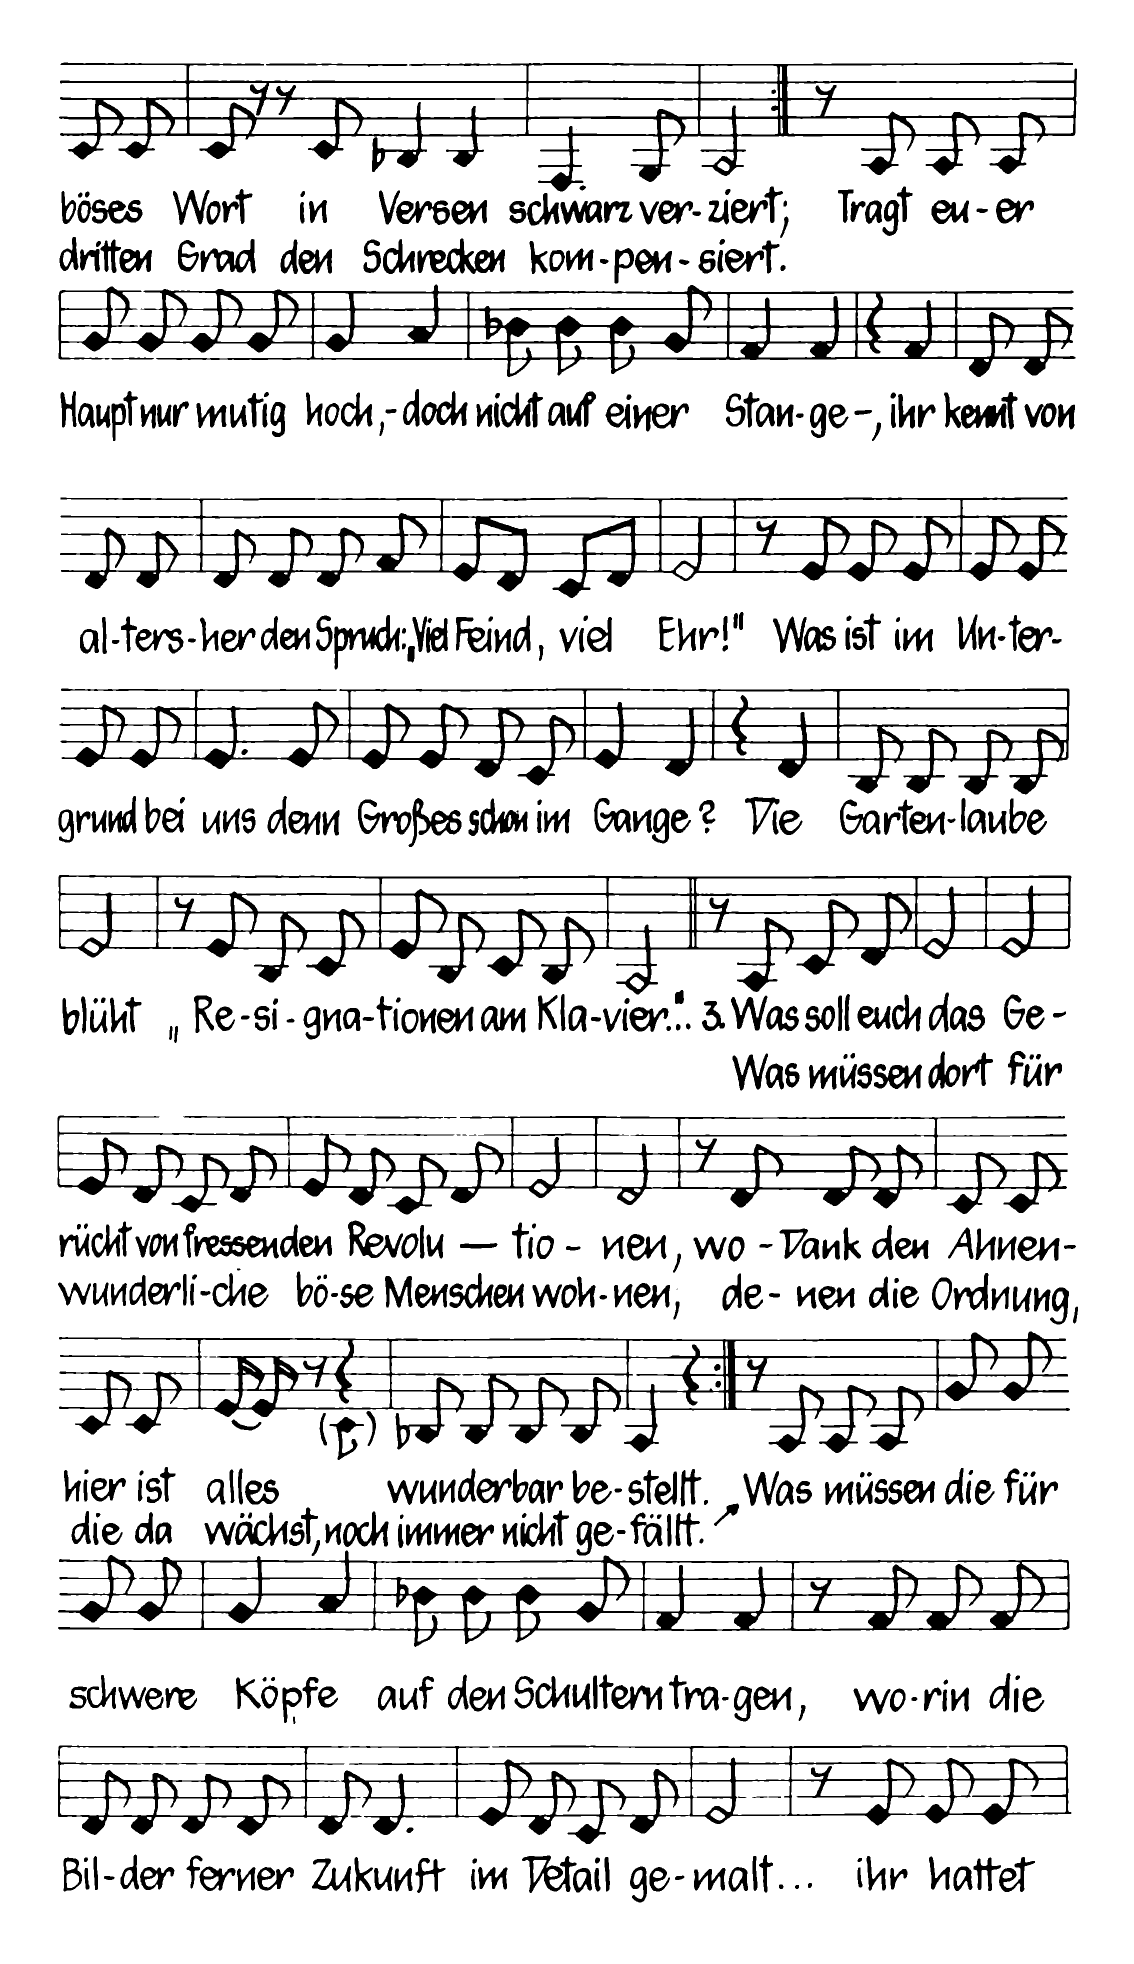 böses Wort in Versen schwarz ver-ziert; Tragt eu-er
dritten Grad den Schrecken kom-pen-siert.
Haupt nur mutig hoch,- doch nicht auf einer Stan-ge-, ihr kennt von
al-ters-her den Spruch: „Viel Feind, viel Ehr!" Was ist im Un-ter-
grund bei uns denn Großes schon im Gange? Die Garten-laube
blüht „Re-si-gna-tionen am Kla-vier..". 3. Was soll euch das Ge-
Was müssen dort für
rücht von fressenden Revolu — tio - nen, wo - Dank den Ahnen-
wunderli-che bö-se Menschen woh-nen, de- nen die Ordnung,
hier ist alles wunderbar be-stellt. Was müssen die für
die da wächst, noch immer nicht ge-fällt.
schwere Köpfe auf den Schultern tra-gen, wo-rin die
Bil-der ferner Zukunft im Detail ge-malt... ihr hattet